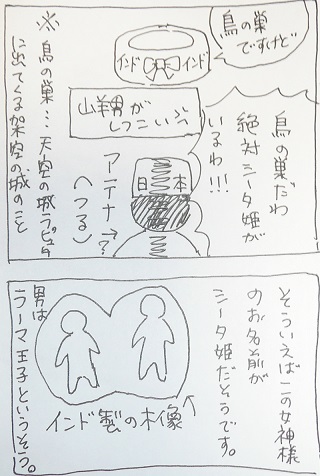 鳥の巣
ですけど
インド
インド
鳥の巣だわ
絶対シータ姫が
いるわ!!!
山羊男が
しつこい
日本
アンテナ→?
(つる)
※鳥の巣…天空の城ラピュタ
に出てくる架空の城のこと
そういえばこの女神様
のお名前が
シータ姫だそうです。
インド製の木像
男は
ラーマ王子というそう。